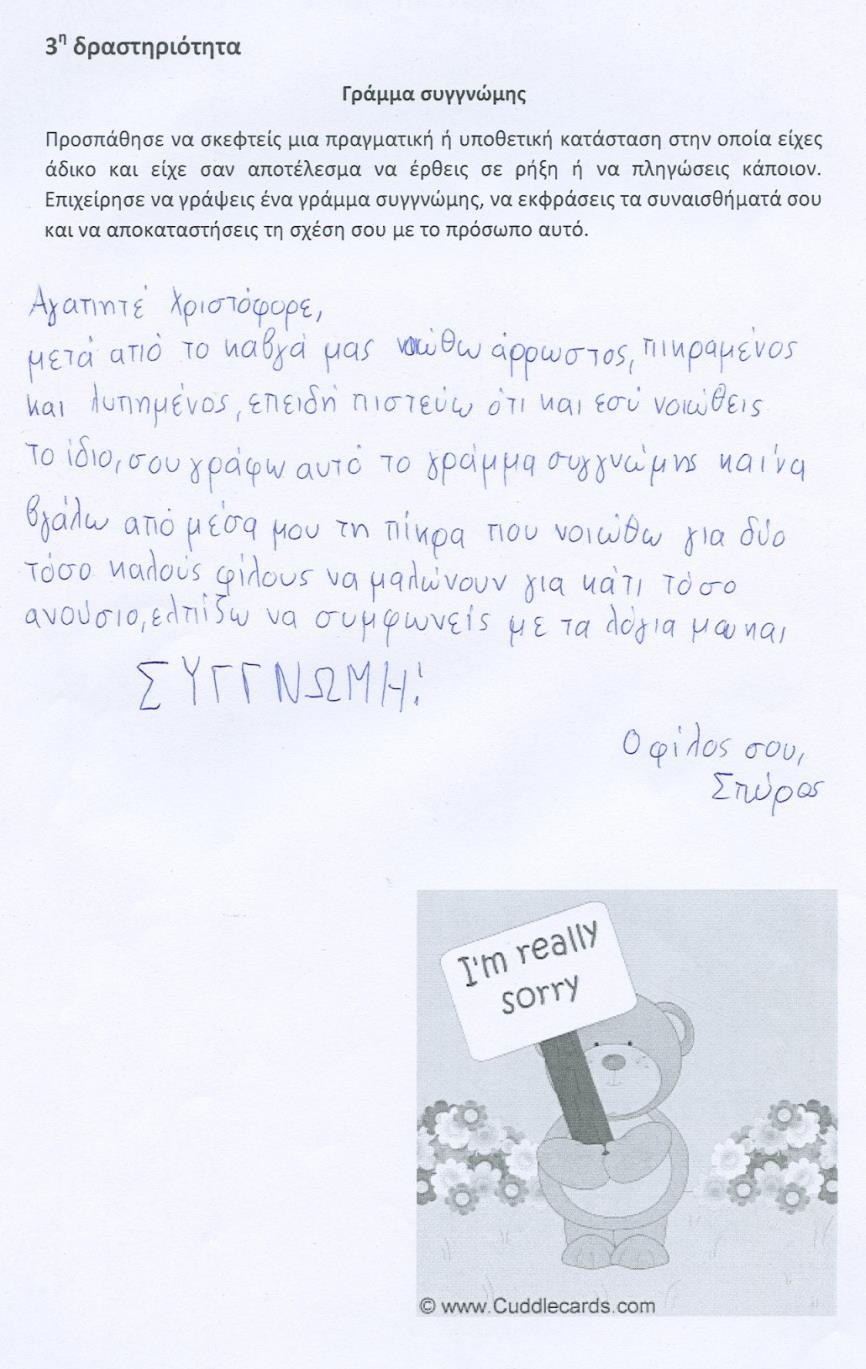 3η δραστηριότητα
Γράμμα συγγνώμης
Προσπάθησε να σκεφτείς μια πραγματική ή υποθετική κατάσταση στην οποία είχες
άδικο και είχε σαν αποτέλεσμα να έρθεις σε ρήξη ή να πληγώσεις κάποιον.
Επιχείρησε να γράψεις ένα γράμμα συγγνώμης, να εκφράσεις τα συναισθήματά σου
και να αποκαταστήσεις τη σχέση σου με το πρόσωπο αυτό.
Αγαπητέ Χριστόφορε,
μετά από το καβγά μας νοιώθω άρρωστος, πικραμένος
και λυπημένος, επειδή πιστεύω ότι και εσύ νοιώθεις
το ίδιο, σου γράφω αυτό το γράμμα συγγνώμης και να
βγάλω από μέσα μου τη πίκρα που νοιώθω για δύο
τόσο καλούς φίλους να μαλώνουν για κάτι τόσο
ανούσιο, ελπίζω να συμφωνείς με τα λόγια μου και
ΣΥΓΓΝΩΜΗ!
Ο φίλος σου,
Σπύρος
I'm really
sorry
© www.Cuddlecards.com